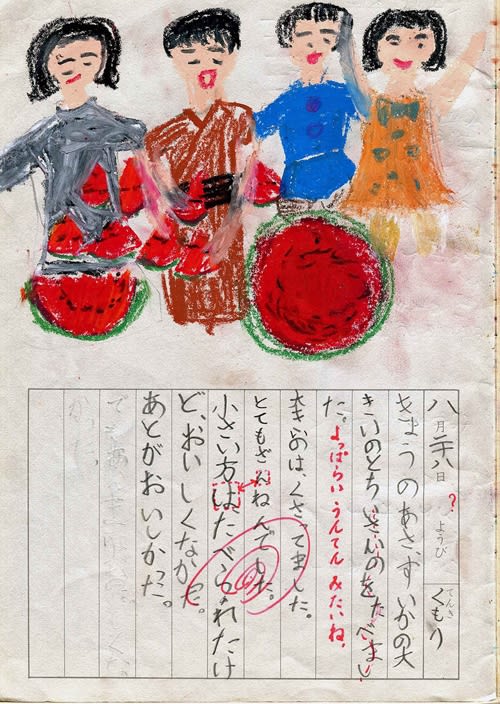 八月二十八日 ? ようび てんき くもり
きょうのあさ、すいかの大
きいのとちいさいのをたべまし
た。
よっぱらいうんてんみたいね。
大きい方は、くさってました。
とてもざんねんでした。
小さい方はたべられたけ
ど、おいしくなかった。
あとがおいしかった。